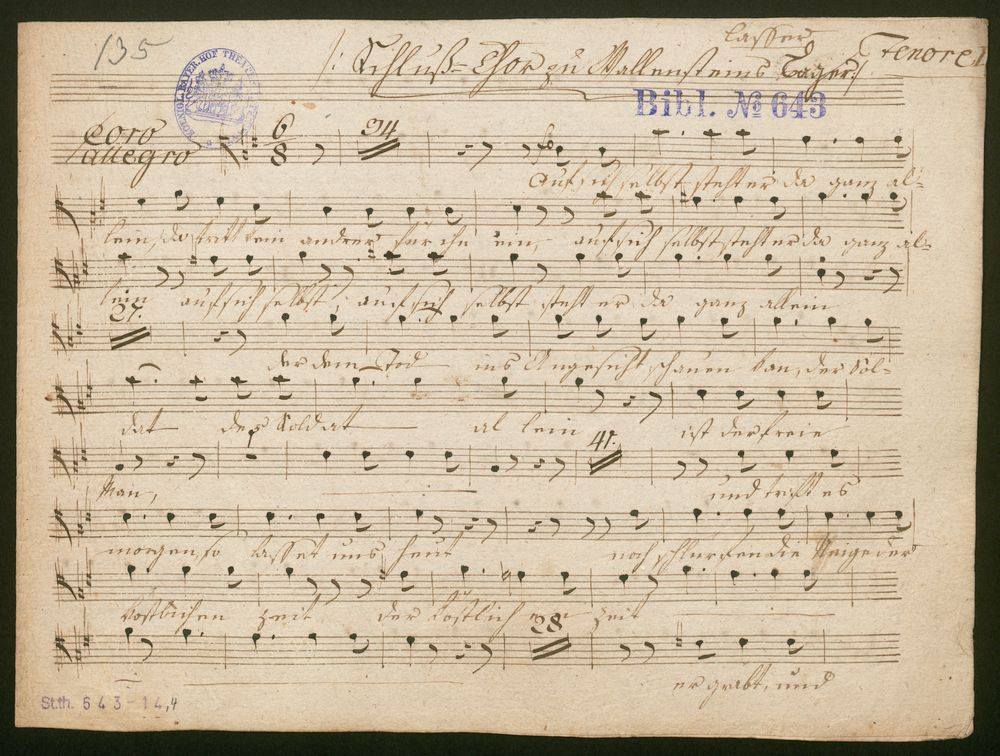 135
lasser
/: Schluß-Chor zu Wallensteins Lager :/
Tenore 1
KOENIGL. BAYER. HOF THEATER
Bibl. № 643
Coro
allegro
6
8
34
auf sich selbst steht er da ganz al=
lein, da tritt kein andrer für ihn ein, auf sich selbst steht er da ganz al=
lein auf sich selbst, auf sich selbst steht er da ganz allein
27.
der dem Tod ins Angesicht schauen kan, der Sol=
dat der Soldat al lein ist der freie
41.
Man, und trifft es
morgen so lasset uns heut noch schlürfen die Neige der
köstlichen zeit der köstlich zeit
28
er grabt, und
St.th. 643-14,4